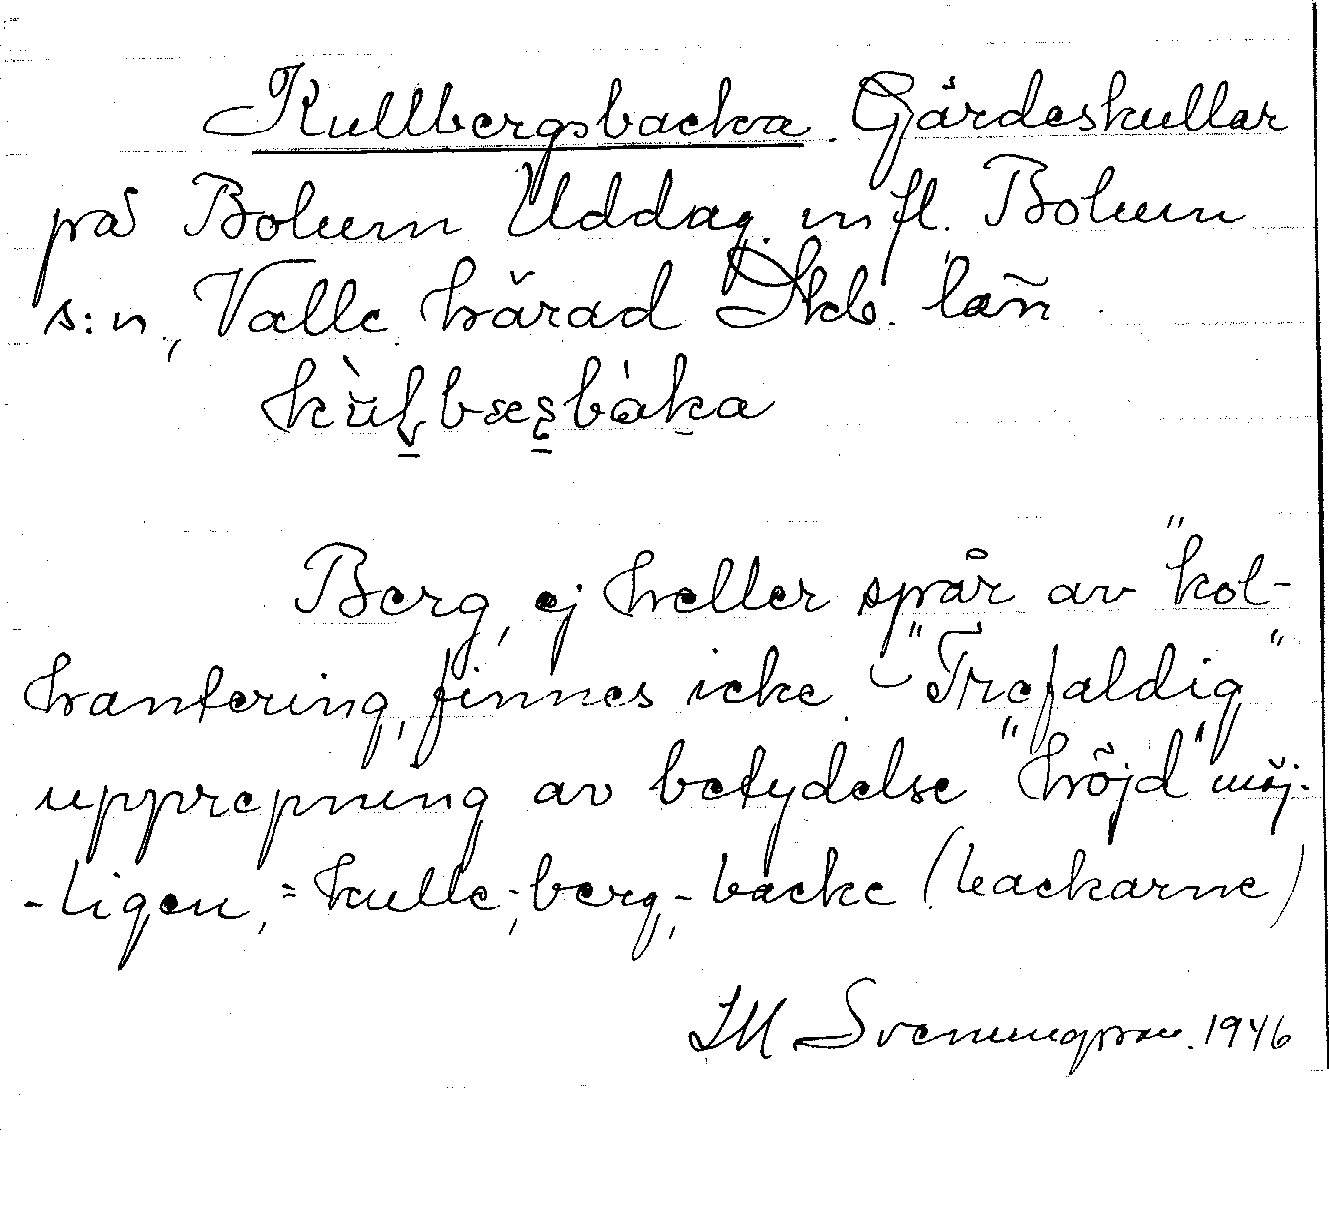 Kullbergsbacka. Gärdeskullar
på Bolum Uddag. m fl. Bolum
s:n, Valle härad Skb. län
Berg, ej heller spår av "kol-
hantering, finnes icke. - "Trefaldig"
upprepning av betydelse "höjd" möj-
-ligen, = kulle-, berg,- backe (backarne)
IM Svenungsson. 1946